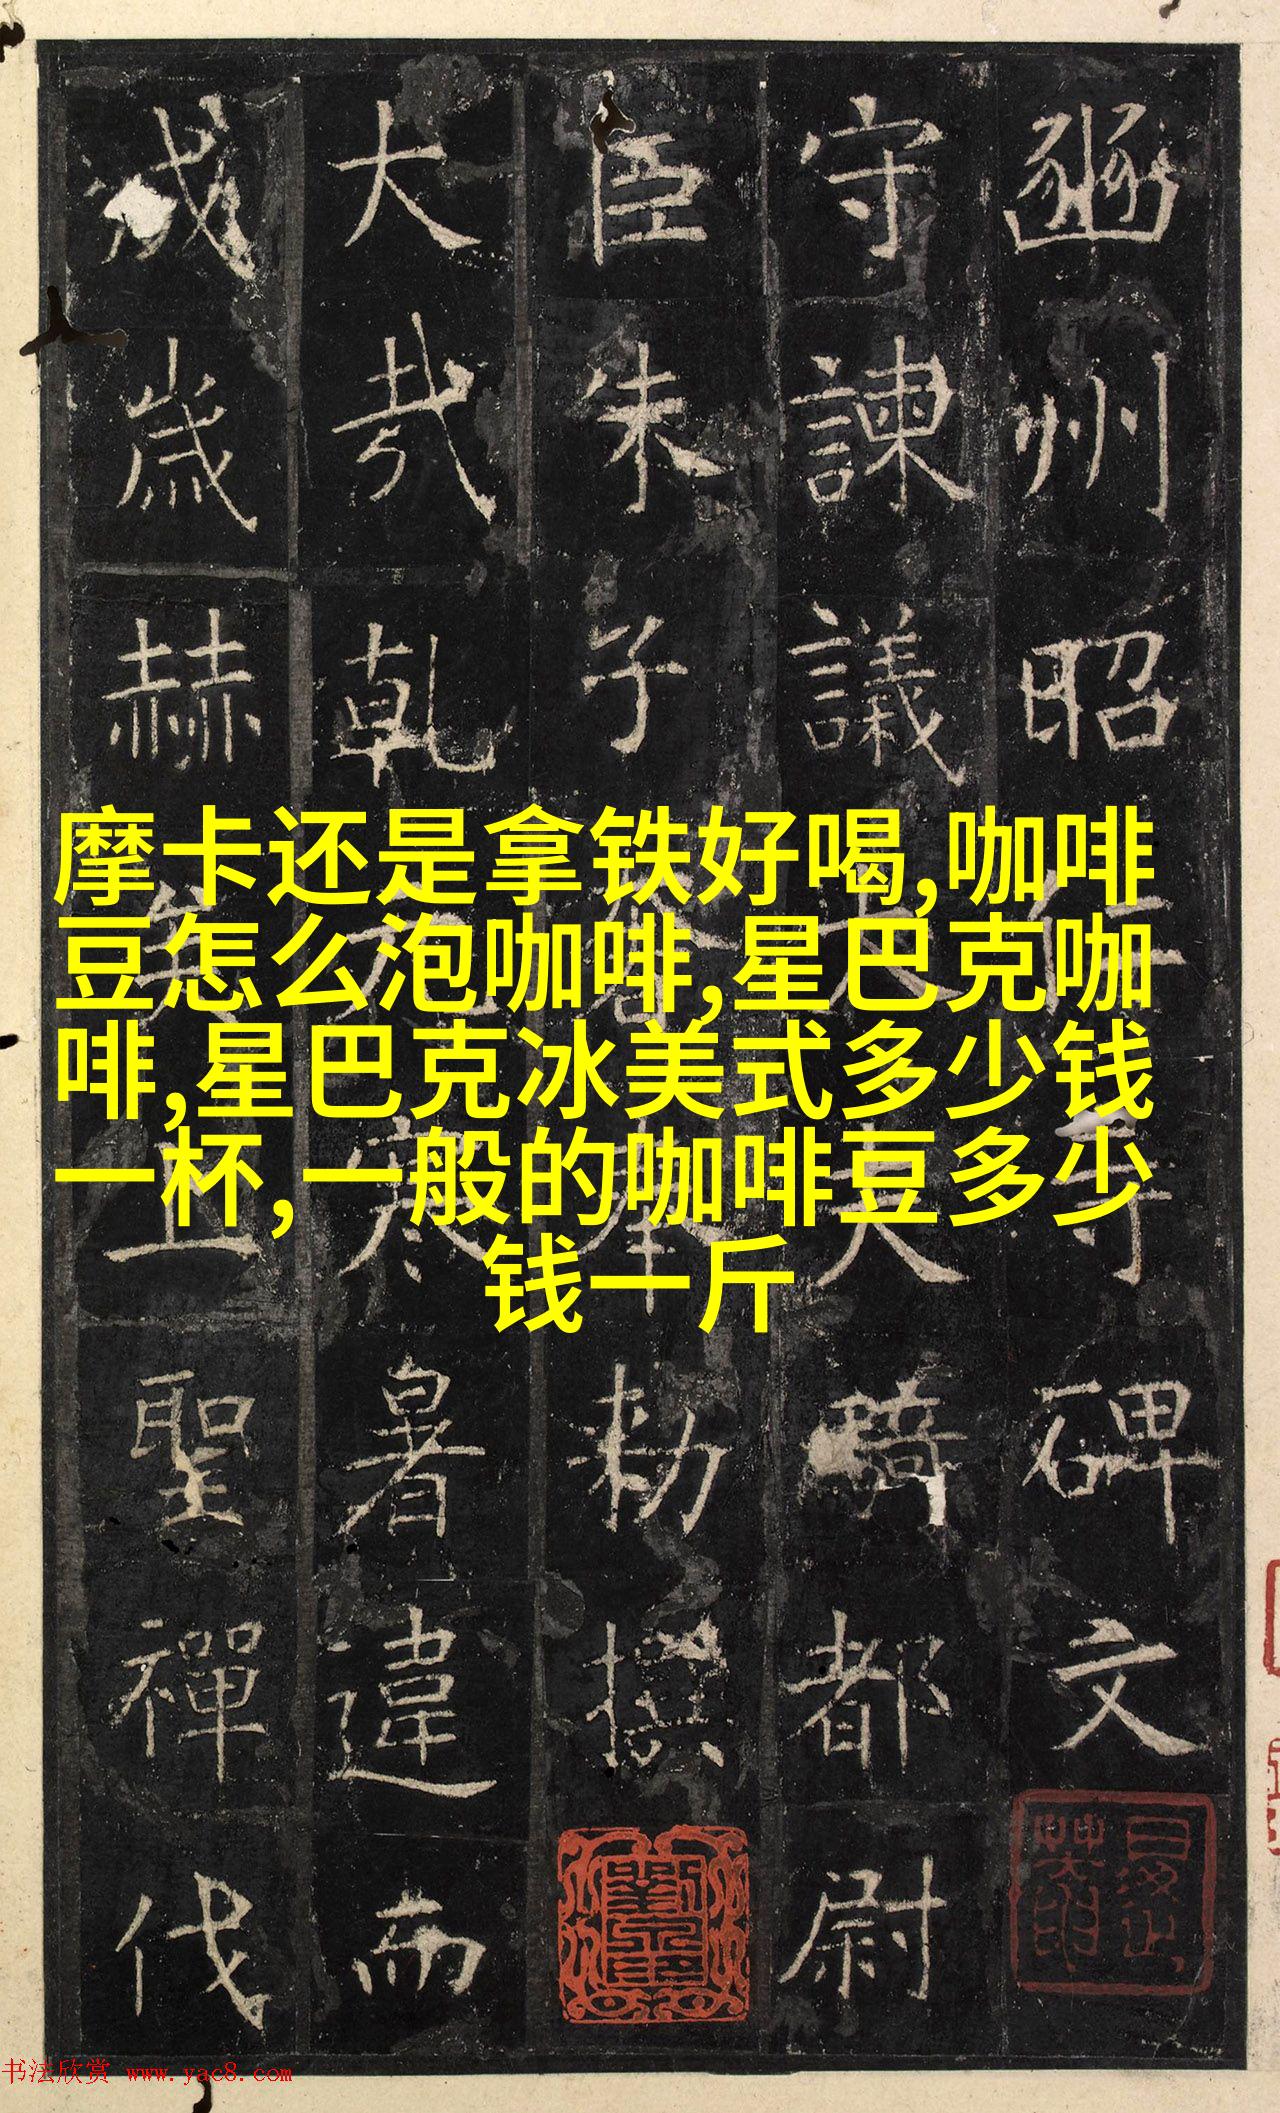 豳州昭仁寺碑文
守諫議大夫騎都尉
臣朱子奉勅撰
大哉乾寒暑違而
成歲赫上聖禪代
摩卡还是拿铁好喝,咖啡
豆怎么泡咖啡,星巴克咖
啡,星巴克冰美式多少钱
一杯,一般的咖啡豆多少
钱一斤
书法欣赏 www.yac8.com